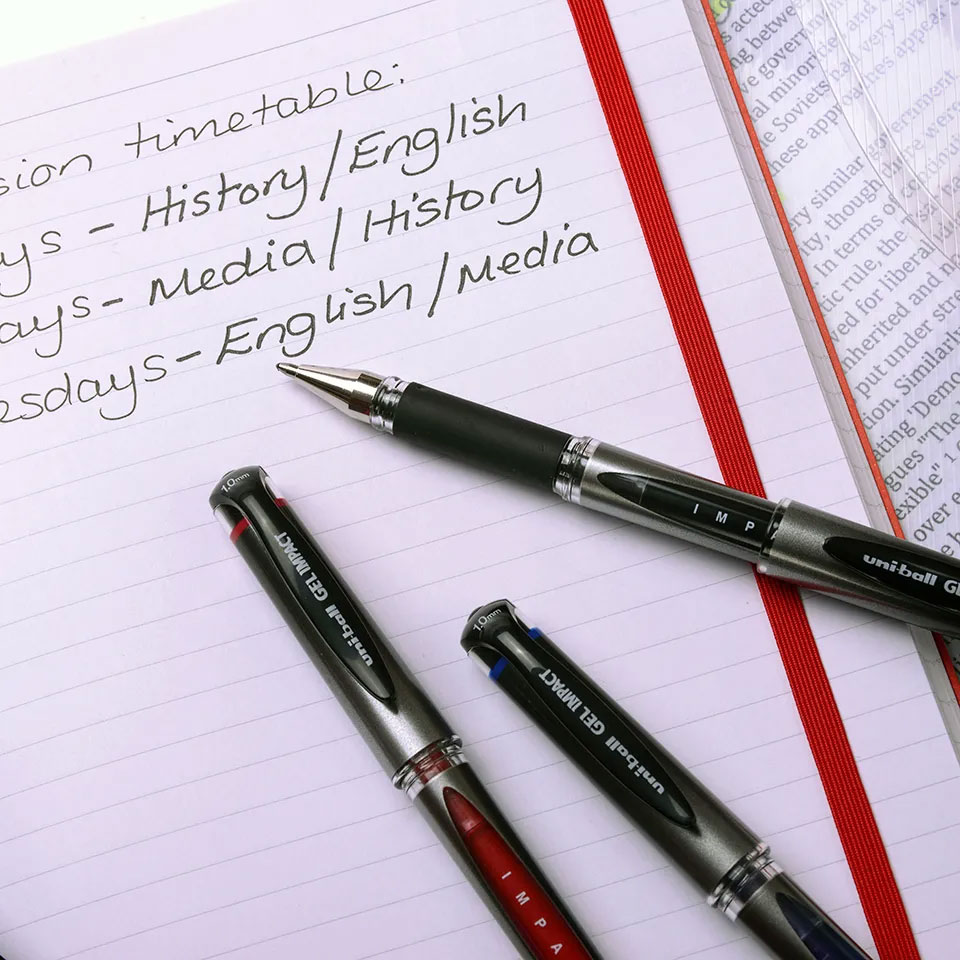 sion timetable:
ys - History/English
ays - Media/History
esdays - English/Media
1.0mm
uni-ball GEL IMPACT
IMPA
1.0mm
uni-ball GEL IMPACT
IMP
uni-ball G
s acted
ing between
ve govern
al minori
the Soviets had very
these approaches appear
very similar
ity, though
In terms of
tic rule, the
ed for liberal
inherited and
put under stre
Similarly
ating "Demo
gues "The
exible"
over e